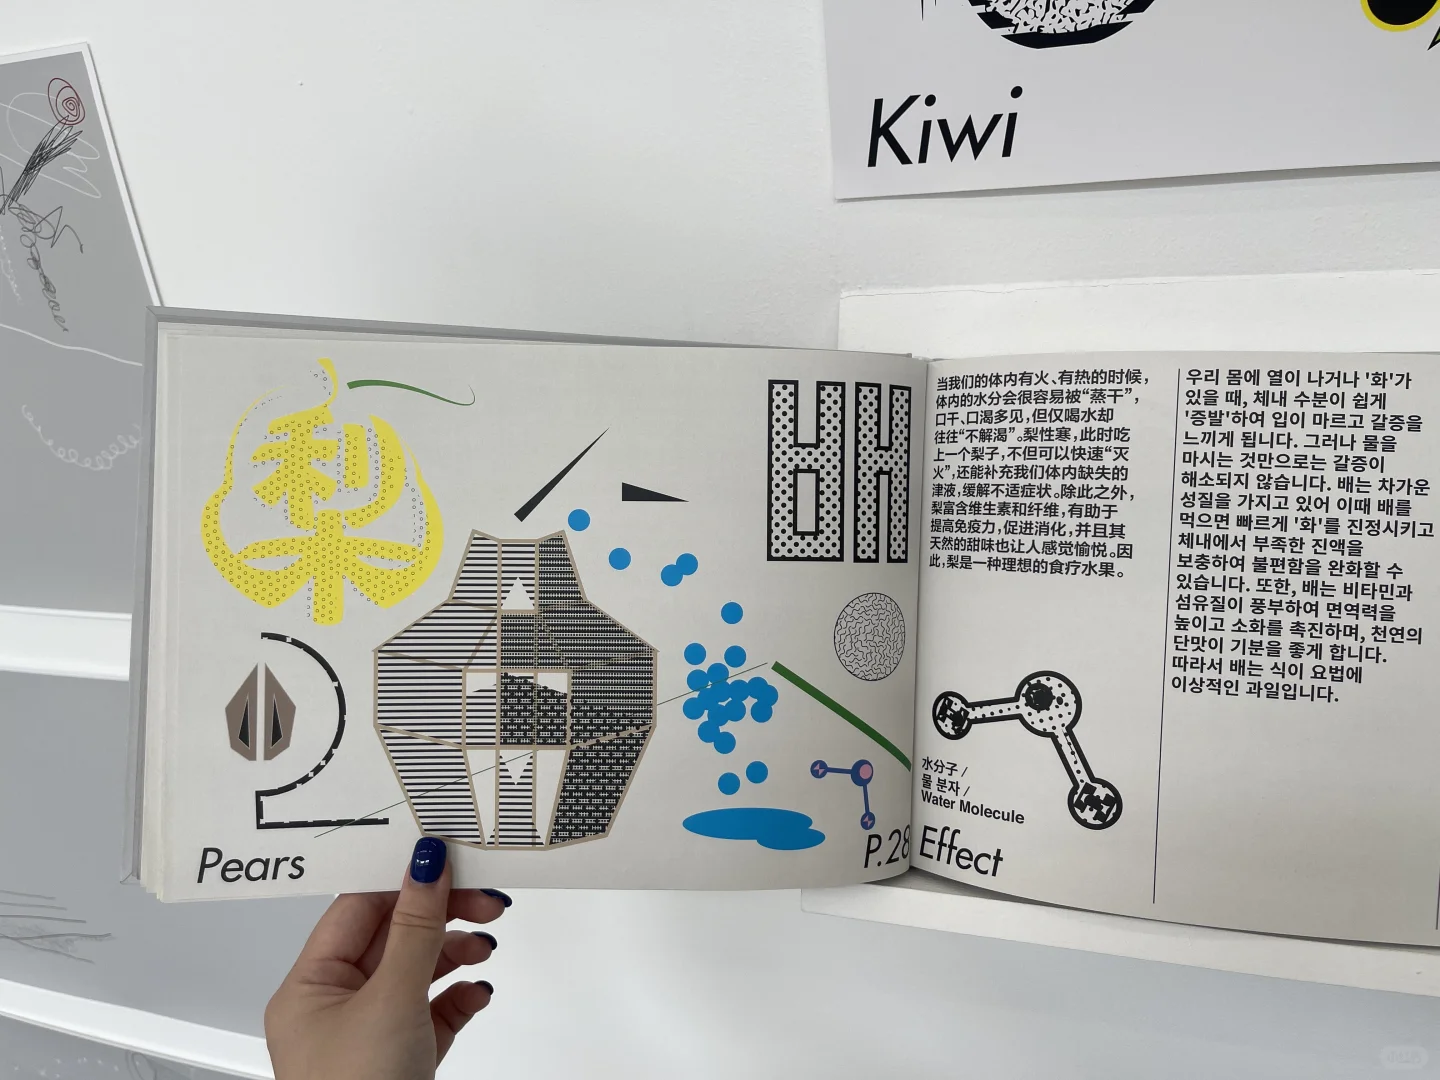 Kiwi
梨
배
Pears
P.28
当我们的体内有火、有热的时候，
体内的水分会很容易被“蒸干”，
口干、口渴多见，但仅喝水却
往往“不解渴”。梨性寒，此时吃
上一个梨子，不但可以快速“灭
火”，还能补充我们体内缺失的
津液，缓解不适症状。除此之外，
梨富含维生素和纤维，有助于
提高免疫力，促进消化，并且其
天然的甜味也让人感觉愉悦。因
此，梨是一种理想的食疗水果。
水分子 /
물 분자 /
Water Molecule
Effect
우리 몸에 열이 나거나 '화'가
있을 때, 체내 수분이 쉽게
'증발'하여 입이 마르고 갈증을
느끼게 됩니다. 그러나 물을
마시는 것만으로는 갈증이
해소되지 않습니다. 배는 차가운
성질을 가지고 있어 이때 배를
먹으면 빠르게 '화'를 진정시키고
체내에서 부족한 진액을
보충하여 불편함을 완화할 수
있습니다. 또한, 배는 비타민과
섬유질이 풍부하여 면역력을
높이고 소화를 촉진하며, 천연의
단맛이 기분을 좋게 합니다.
따라서 배는 식이 요법에
이상적인 과일입니다.